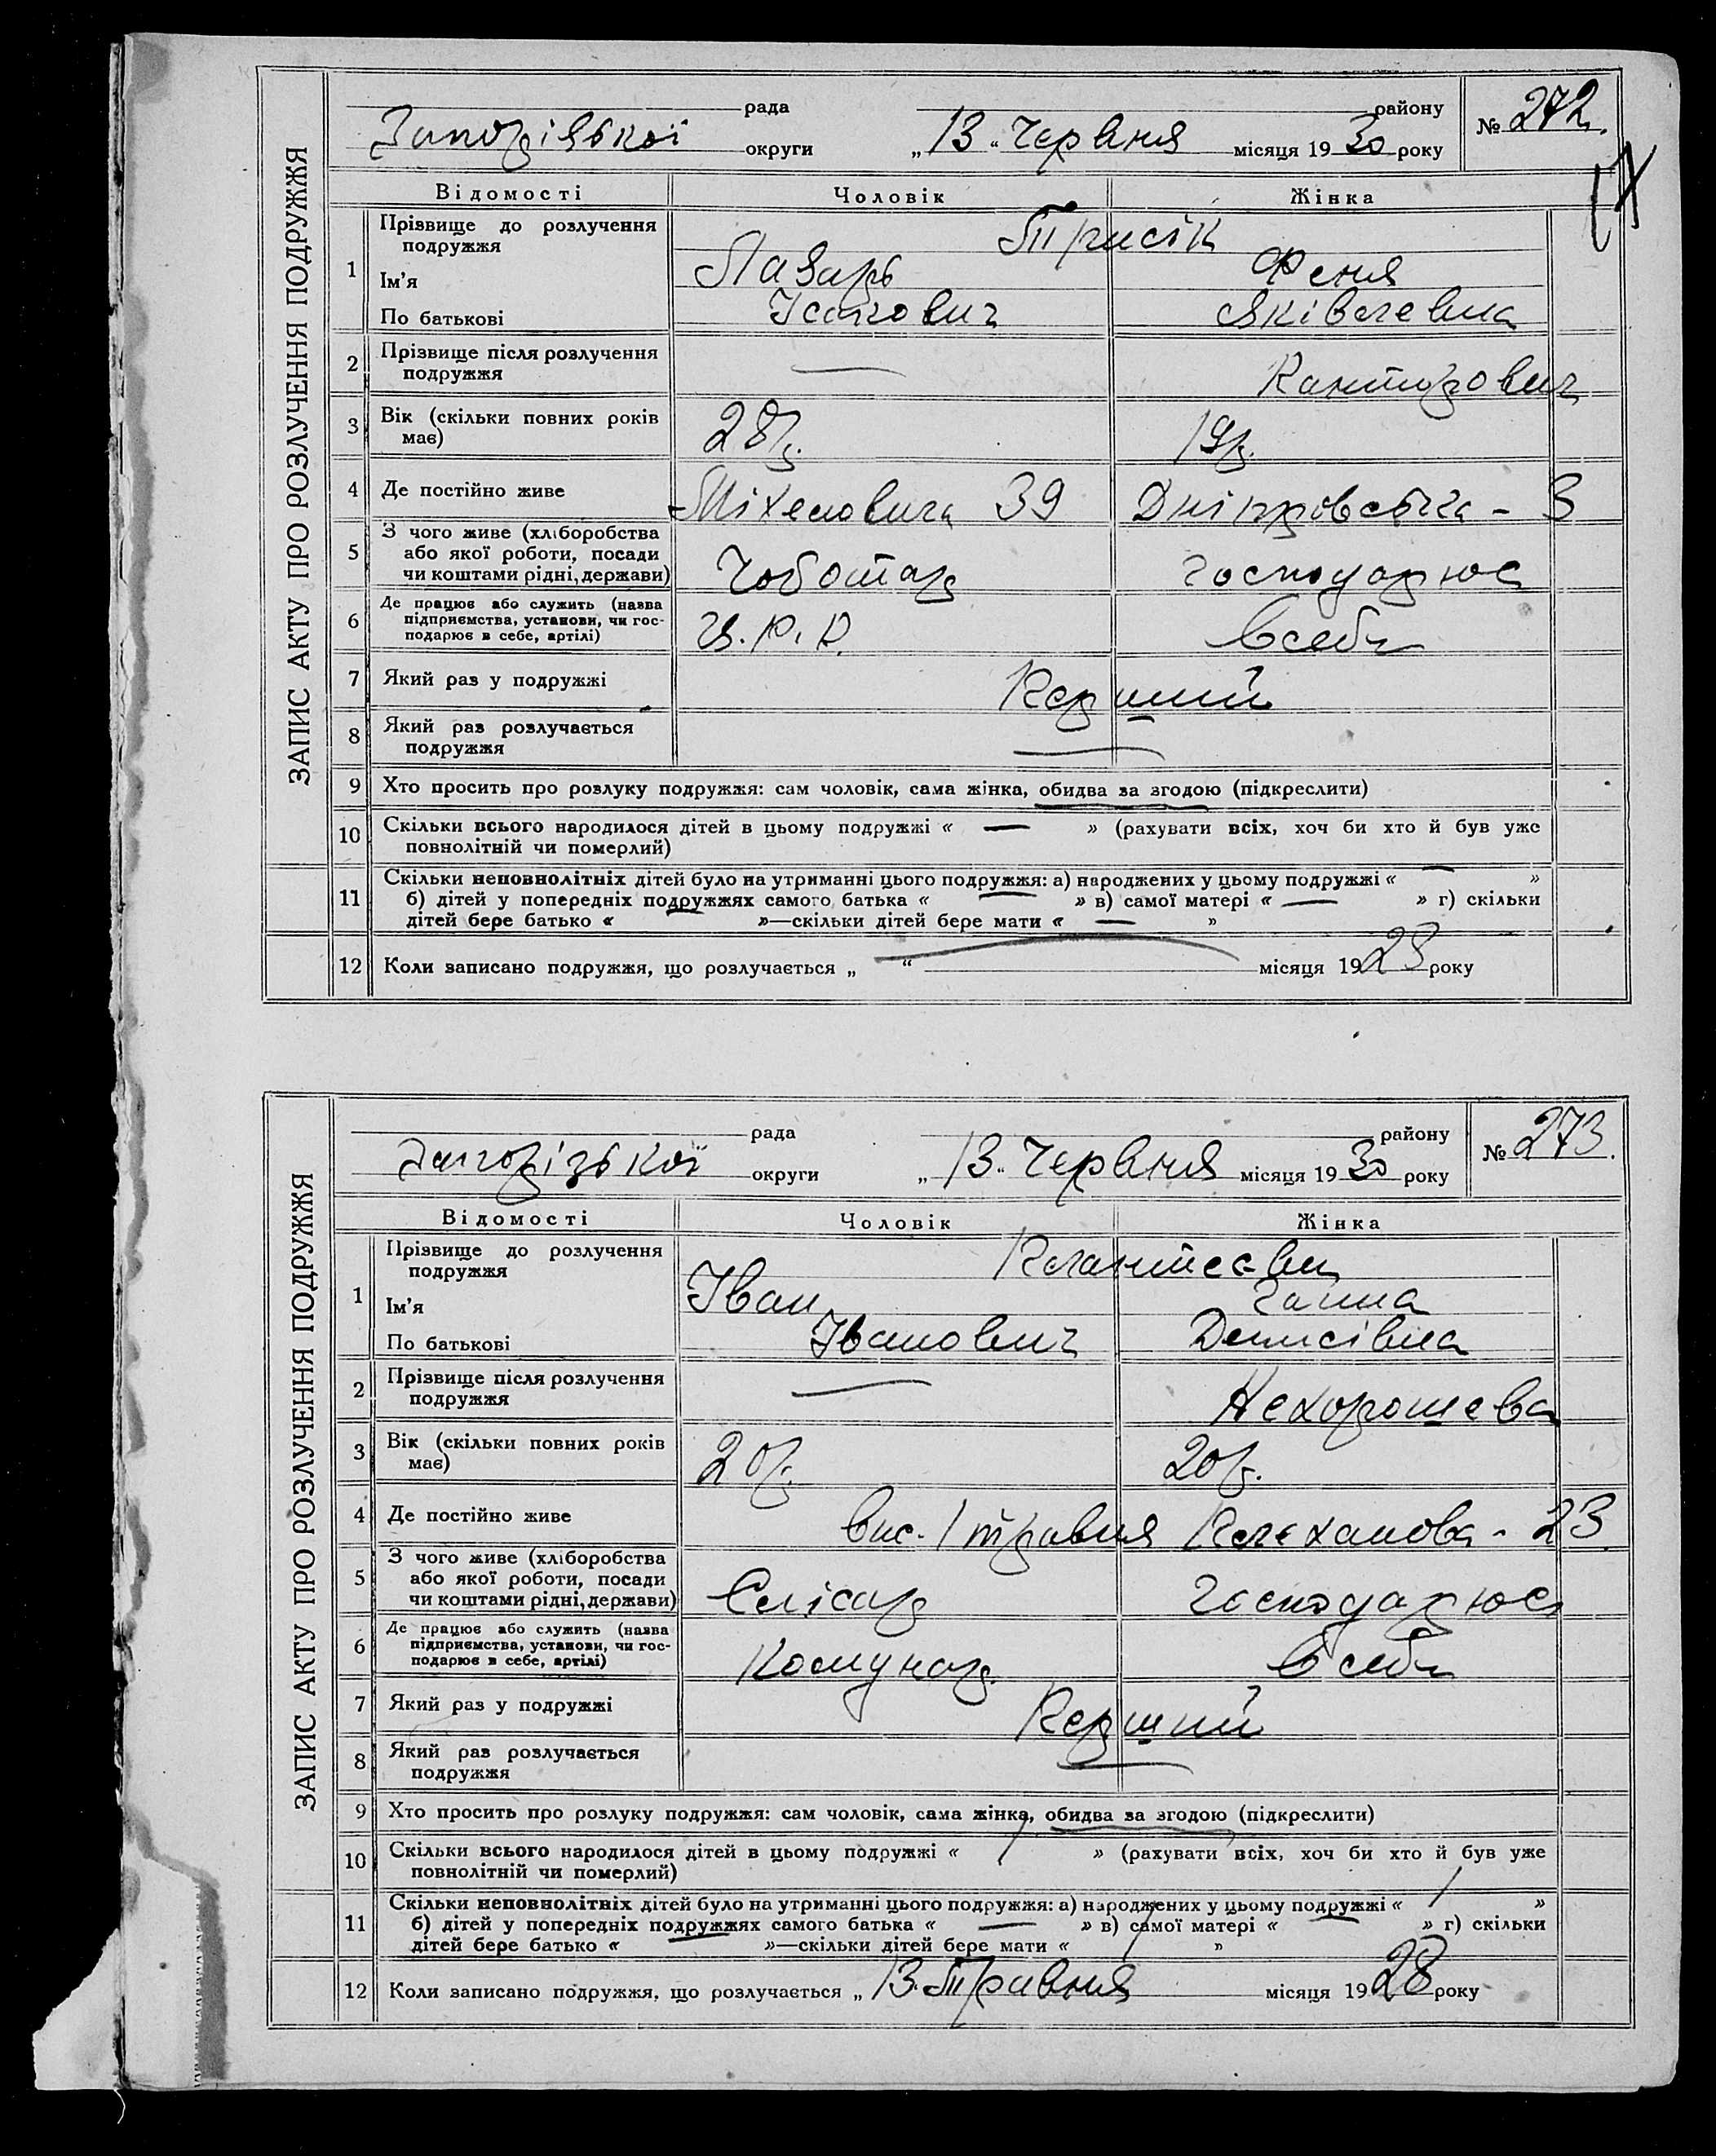 ЗАПИС АКТУ ПРО РОЗЛУЧЕННЯ ПОДРУЖЖЯ
рада району № 272.
Запорізької округи „13“ Червня місяця 1930 року
Відомості Чоловік Жінка
1 Прізвище до розлучення подружжя Трисік
Ім'я Лазарь Феня
По батькові Ісакович Яківлевна
2 Прізвище після розлучення подружжя — Канторович
3 Вік (скільки повних років має) 28 р. 19 р.
4 Де постійно живе 39 Дніпровська - 3
5 З чого живе (хліборобства
або якої роботи, посади
чи коштами рідні, держави) Чоботар господарює
6 Де працює або служить (назва
підприємства, установи, чи гос-
подарює в себе, артілі) Ц.Р.К. в себе
7 Який раз у подружжі Перший
8 Який раз розлучається подружжя —
9 Хто просить про розлуку подружжя: сам чоловік, сама жінка, обидва за згодою (підкреслити)
10 Скільки всього народилося дітей в цьому подружжі « — » (рахувати всіх, хоч би хто й був уже
повнолітній чи померлий)
11 Скільки неповнолітніх дітей було на утриманні цього подружжя: а) народжених у цьому подружжі « — »
б) дітей у попередніх подружжях самого батька « — » в) самої матері « — » г) скільки
дітей бере батько « »—скільки дітей бере мати « — »
12 Коли записано подружжя, що розлучається „ “ місяця 1928 року
ЗАПИС АКТУ ПРО РОЗЛУЧЕННЯ ПОДРУЖЖЯ
рада району № 273.
Запорізької округи „13“ Червня місяця 1930 року
Відомості Чоловік Жінка
1 Прізвище до розлучення подружжя
Ім'я Іван Ганна
По батькові Іванович Денисівна
2 Прізвище після розлучення подружжя — Нехорошева
3 Вік (скільки повних років має) 20 р. 20 р.
4 Де постійно живе вис. 1 травня Плеханова - 23
5 З чого живе (хліборобства
або якої роботи, посади
чи коштами рідні, держави) Слісар господарює
6 Де працює або служить (назва
підприємства, установи, чи гос-
подарює в себе, артілі) Комунар. в себе
7 Який раз у подружжі Перший
8 Який раз розлучається подружжя —
9 Хто просить про розлуку подружжя: сам чоловік, сама жінка, обидва за згодою (підкреслити)
10 Скільки всього народилося дітей в цьому подружжі « 1 » (рахувати всіх, хоч би хто й був уже
повнолітній чи померлий)
11 Скільки неповнолітніх дітей було на утриманні цього подружжя: а) народжених у цьому подружжі « 1 »
б) дітей у попередніх подружжях самого батька « — » в) самої матері « — » г) скільки
дітей бере батько « »—скільки дітей бере мати « 1 »
12 Коли записано подружжя, що розлучається „ 13. Травня місяця 1928 року